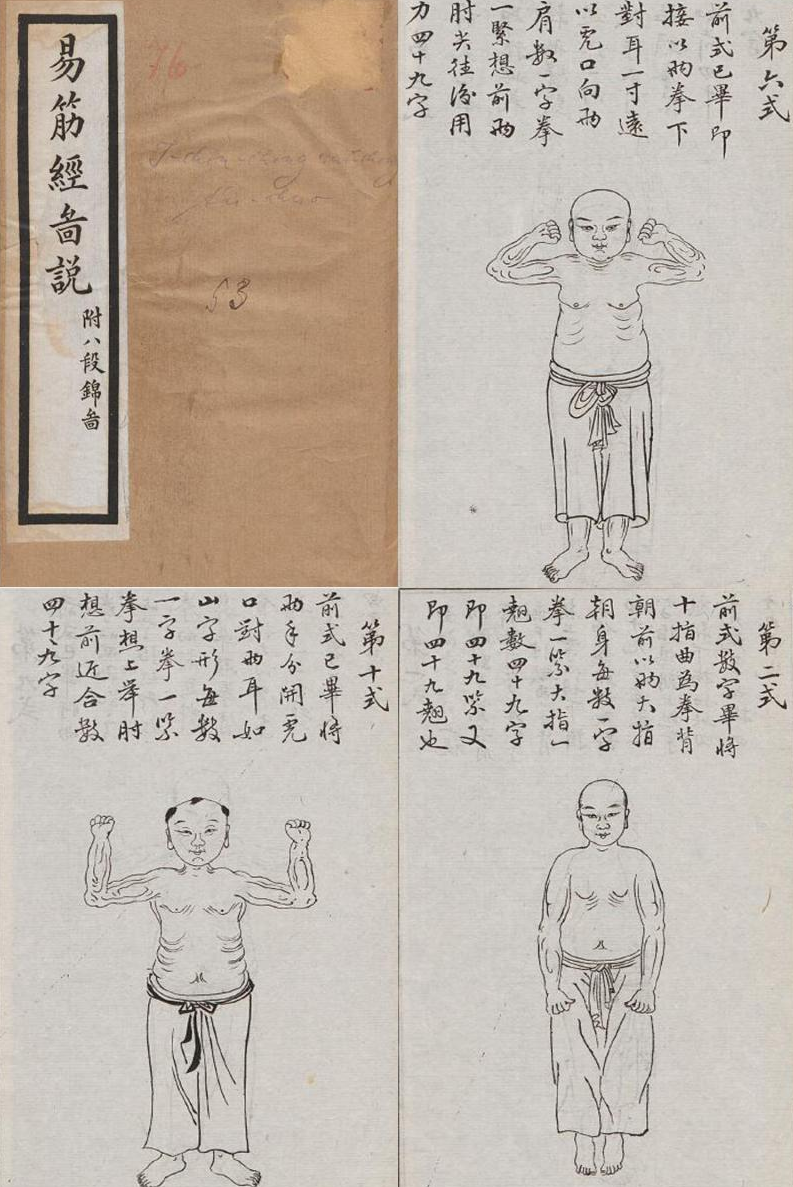 易筋經啚説
附八段錦啚
76
53
第六式
前式已畢即
接以兩拳下
對耳一寸遠
以虎口向兩
肩數一字拳
一緊想前兩
肘尖往後用
力四十九字
第十式
前式已畢將
兩手分開虎
口對兩耳如
山字形每數
一字拳一緊
拳想上举肘
想前近合數
四十九字
第二式
前式數字畢將
十指曲為拳背
朝前以兩大指
朝身每數一字
拳一緊大指一
翹數四十九字
即四十九緊又
即四十九翹也